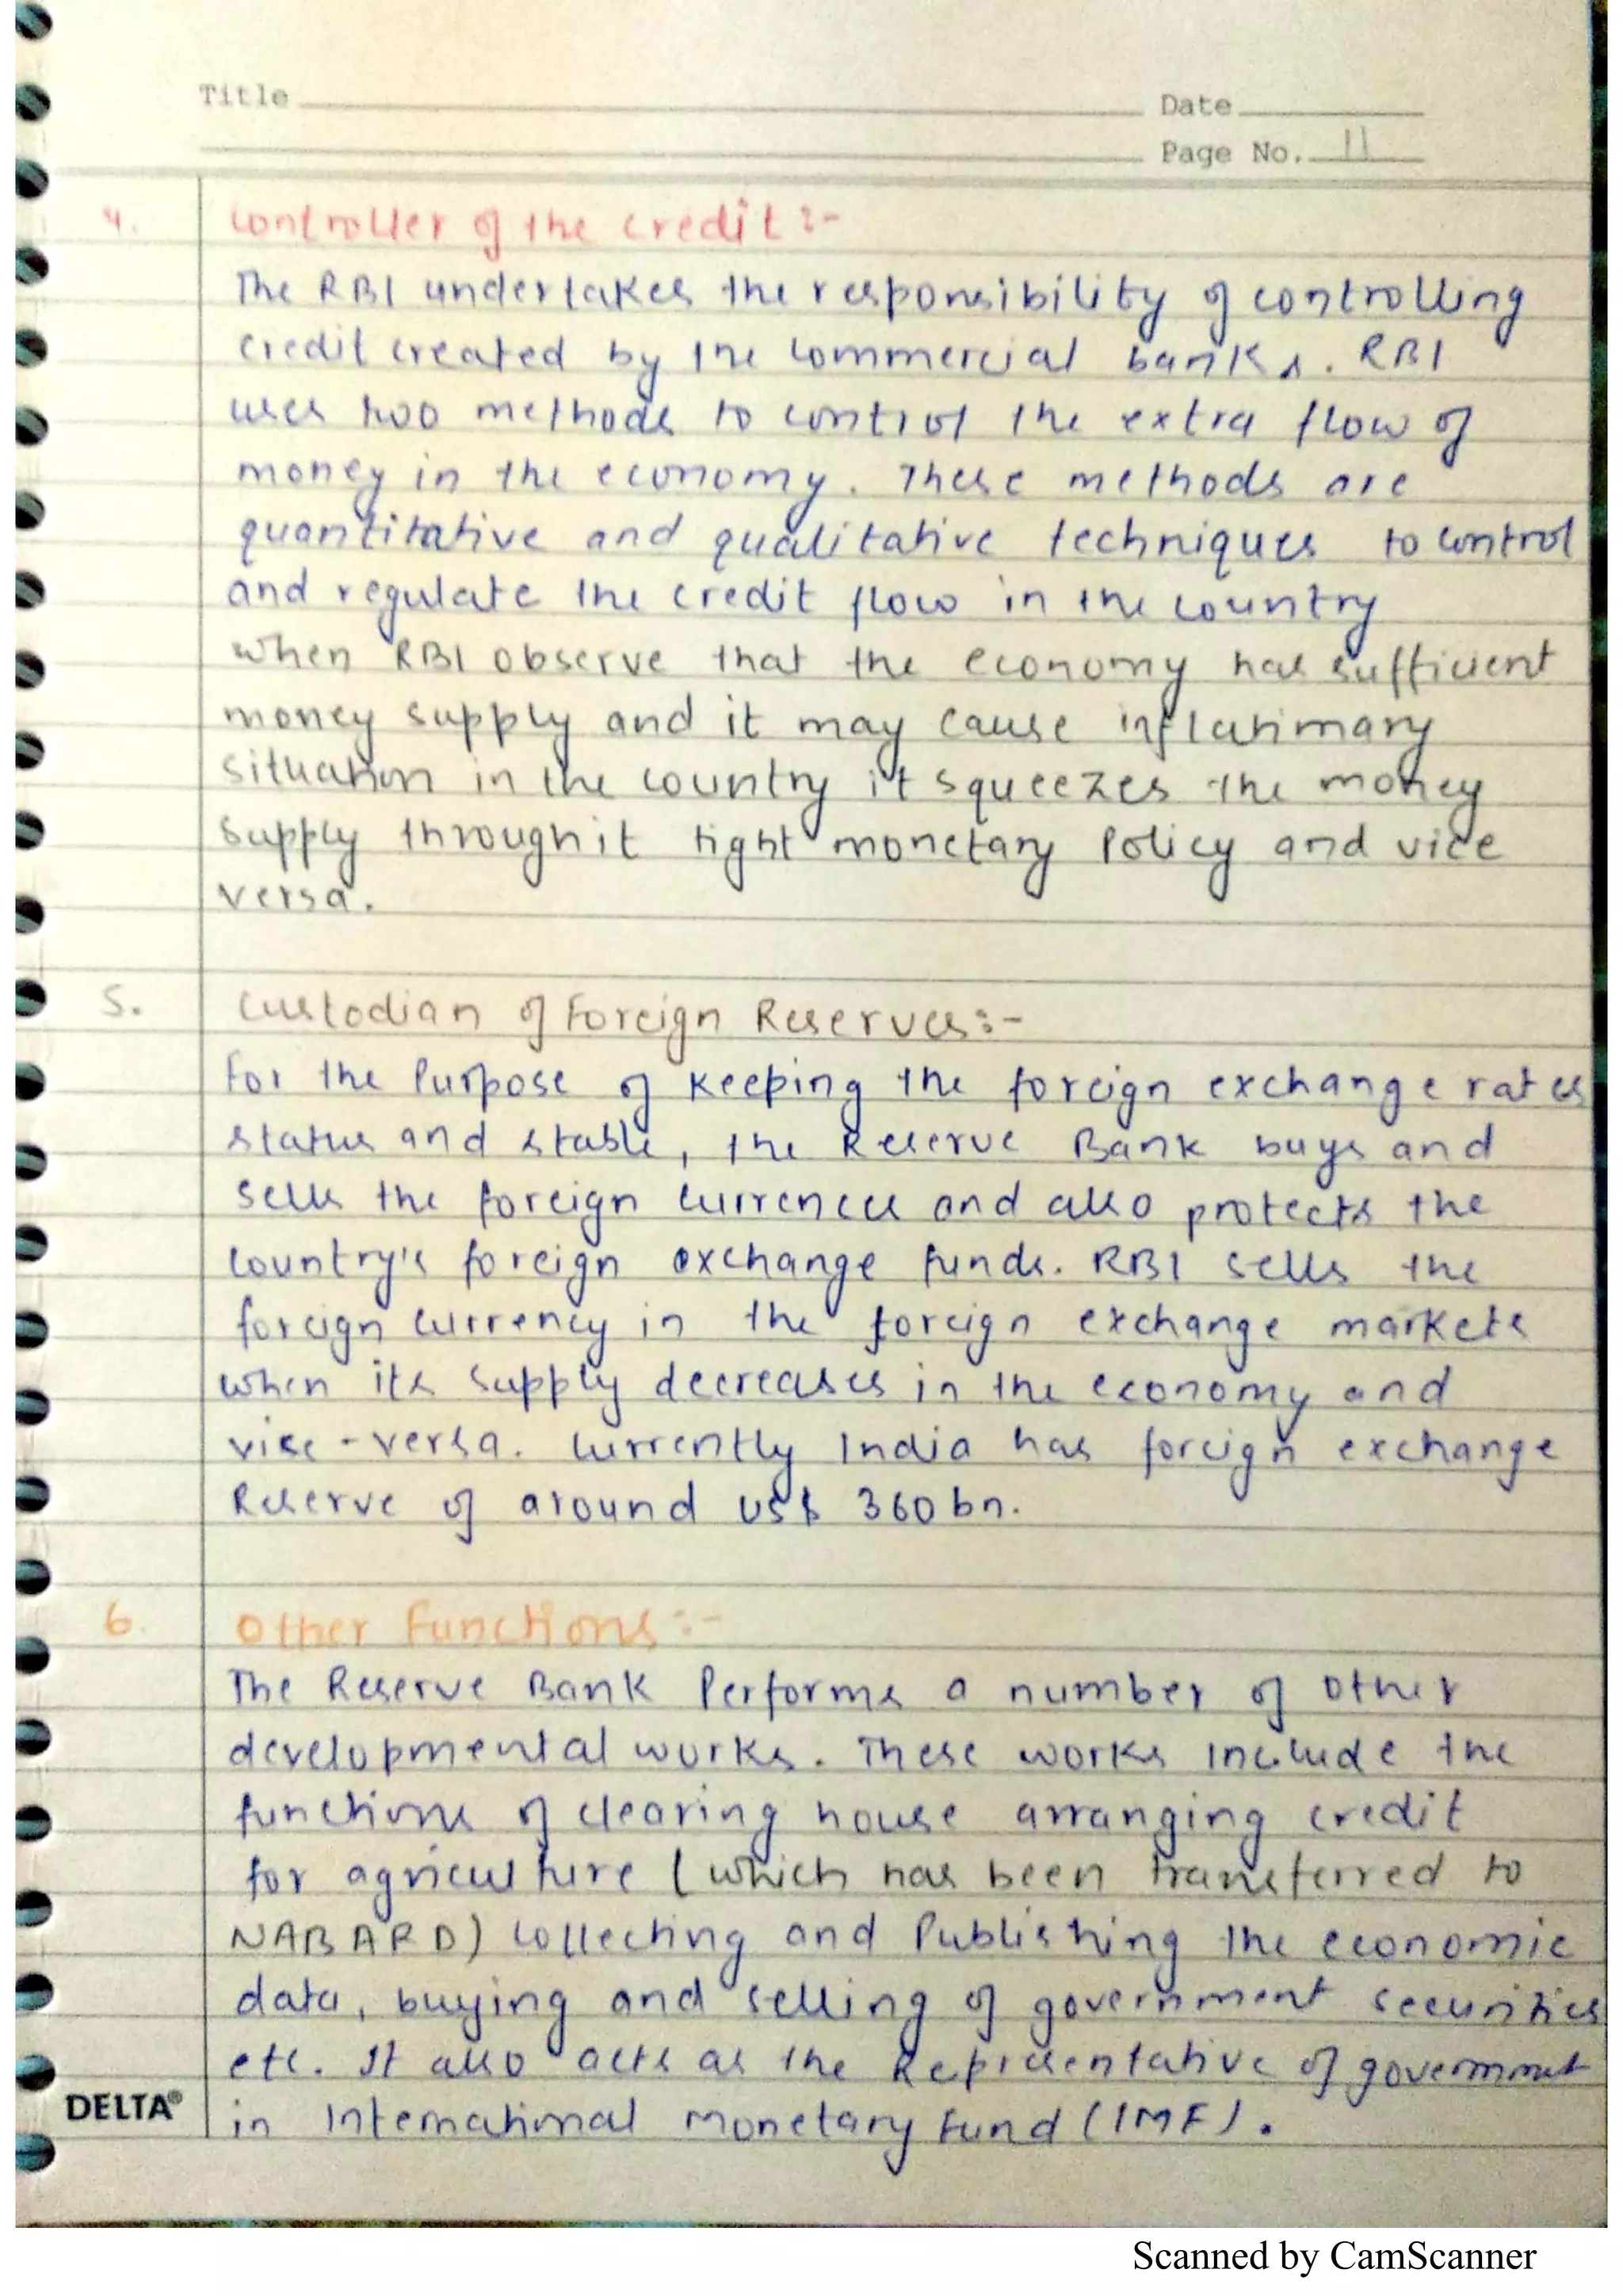 Title
Date
Page No. 11
4. Controller of the credit :-
The RBI undertakes the responsibility of controlling
credit created by the commercial banks. RBI
uses two methods to control the extra flow of
money in the economy. These methods are
quantitative and qualitative techniques to control
and regulate the credit flow in the country
when RBI observe that the economy has sufficient
money supply and it may cause inflationary
situation in the country it squeezes the money
supply through it tight monetary Policy and vice
versa.
5. Custodian of Foreign Reserves:-
For the Purpose of keeping the foreign exchange rates
status and stable, the Reserve Bank buys and
sells the foreign currences and also protects the
country's foreign exchange funds. RBI sells the
foreign currency in the foreign exchange markets
when its supply decreases in the economy and
vice-versa. Currently India has foreign exchange
Reserve of around US$ 360bn.
6. Other Functions:-
The Reserve Bank Performs a number of other
developmental works. These works include the
functions of clearing house arranging credit
for agriculture (which has been transferred to
NABARD) collecting and Publishing the economic
data, buying and selling of government securities
etc. It also acts as the Representative of government
in International Monetary Fund (IMF).
DELTA®
Scanned by CamScanner